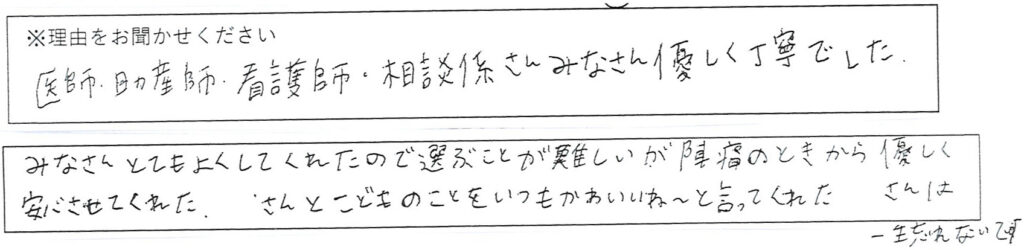 ※理由をお聞かせください
医師・助産師・看護師・相談係さんみなさん優しく丁寧でした.
みなさんとてもよくしてくれたので選ぶことが難しいが陣痛のときから優しく
安心させてくれた. さんとこどものことをいつもかわいいね～と言ってくれた さんは
一生忘れないです